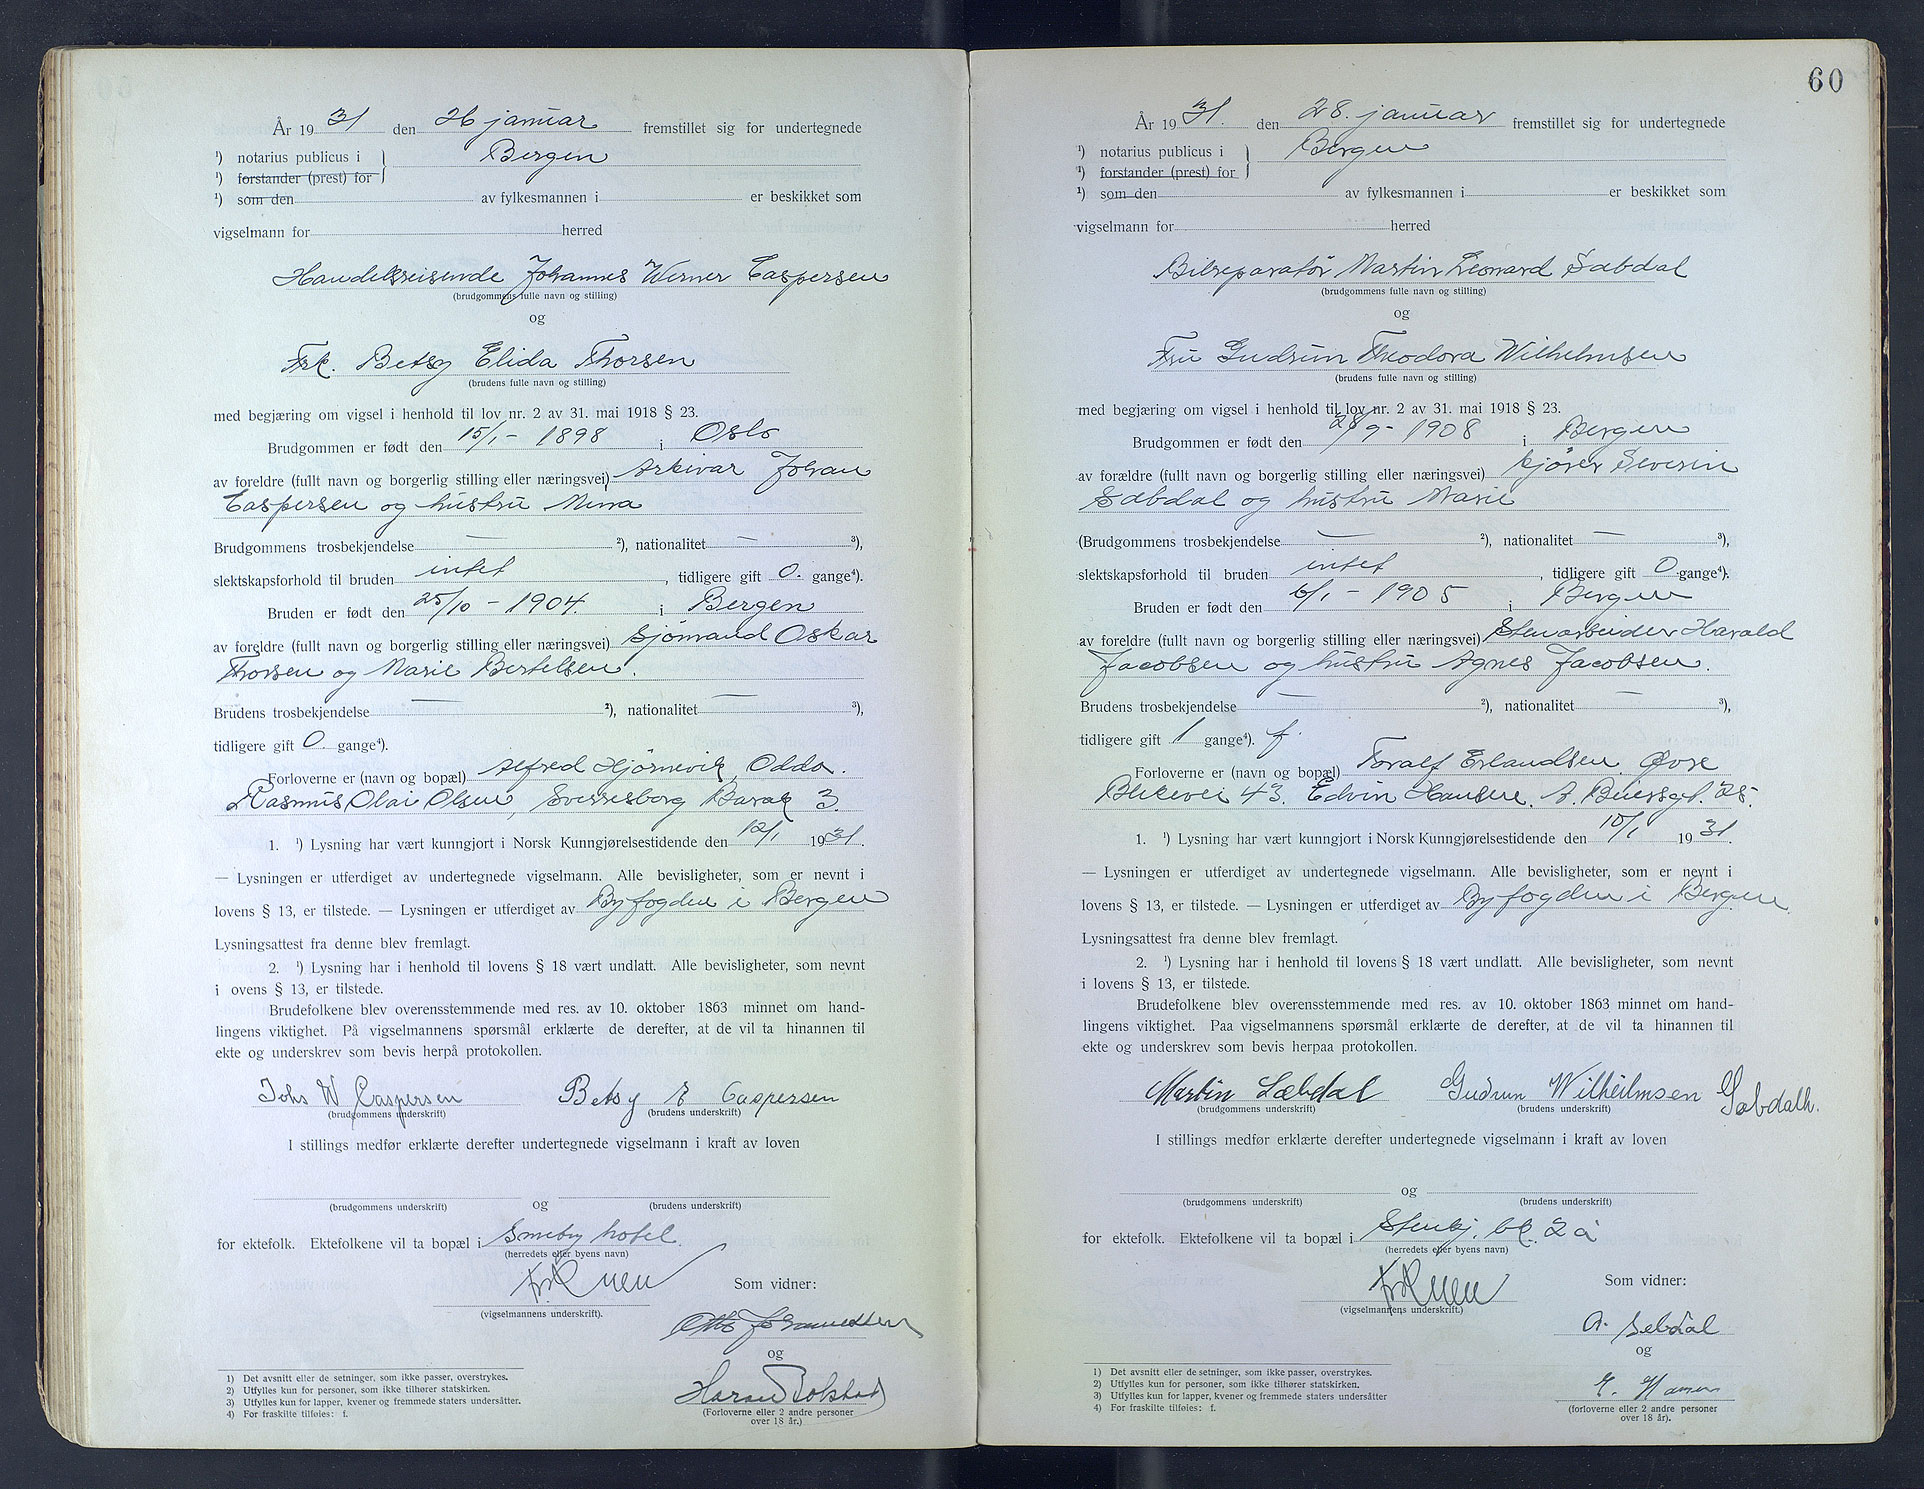 År 1931 den 26 januar fremstillet sig for undertegnede
¹) notarius publicus i } Bergen
¹) forstander (prest) for
¹) som den av fylkesmannen i er beskikket som
vigselmann for herred
Handelsreisende Johannes Werner Caspersen
(brudgommens fulle navn og stilling)
og
Frk. Betsy Elida Thorsen
(brudens fulle navn og stilling)
med begjæring om vigsel i henhold til lov nr. 2 av 31. mai 1918 § 23.
Brudgommen er født den 15/1 - 1898 i Oslo
av foreldre (fullt navn og borgerlig stilling eller næringsvei) Arkivar Johan
Caspersen og hustru Mina
Brudgommens trosbekjendelse — ²), nationalitet — ³),
slektskapsforhold til bruden intet, tidligere gift 0. gange⁴).
Bruden er født den 25/10 - 1904. i Bergen
av foreldre (fullt navn og borgerlig stilling eller næringsvei) Sjömand Oskar
Thorsen og Marie Bertelsen.
Brudens trosbekjendelse — ²), nationalitet — ³),
tidligere gift 0. gange⁴).
Forloverne er (navn og bopæl) Alfred Hjörnevik, Odda.
Rasmus Olai Olsen, Sverresborg Barak 3.
1. ¹) Lysning har vært kunngjort i Norsk Kunngjørelsestidende den 12/1 1931.
— Lysningen er utferdiget av undertegnede vigselmann. Alle bevisligheter, som er nevnt i
lovens § 13, er tilstede. — Lysningen er utferdiget av Byfogden i Bergen
Lysningsattest fra denne blev fremlagt.
2. ¹) Lysning har i henhold til lovens § 18 vært undlatt. Alle bevisligheter, som nevnt
i ovens § 13, er tilstede.
Brudefolkene blev overensstemmende med res. av 10. oktober 1863 minnet om hand-
lingens viktighet. På vigselmannens spørsmål erklærte de derefter, at de vil ta hinannen til
ekte og underskrev som bevis herpå protokollen.
Johs W Caspersen Betsy E Caspersen
(brudgommens underskrift) (brudens underskrift)
I stillings medfør erklærte derefter undertegnede vigselmann i kraft av loven
og
(brudgommens underskrift) (brudens underskrift)
for ektefolk. Ektefolkene vil ta bopæl i Smeby hotel.
(herredets eller byens navn)
Som vidner:
(vigselmannens underskrift).
Otto Johannessen
og
(Forloverne eller 2 andre personer
over 18 år.)
1) Det avsnitt eller de setninger, som ikke passer, overstrykes.
2) Utfylles kun for personer, som ikke tilhører statskirken.
3) Utfylles kun for lapper, kvener og fremmede staters undersåtter.
4) For fraskilte tilføies: f.
60
År 1931. den 28. januar fremstillet sig for undertegnede
¹) notarius publicus i } Bergen
¹) forstander (prest) for
¹) som den av fylkesmannen i er beskikket som
vigselmann for herred
Bilreparatör Martin Leonard Sæbdal
(brudgommens fulle navn og stilling)
og
Fru Gudrun Theodora Wilhelmsen
(brudens fulle navn og stilling)
med begjæring om vigsel i henhold til lov nr. 2 av 31. mai 1918 § 23.
Brudgommen er født den 28/9 - 1908 i Bergen
av forældre (fullt navn og borgerlig stilling eller næringsvei) kjörer Severin
Sæbdal og hustru Marie
(Brudgommens trosbekjendelse — ²), nationalitet — ³),
slektskapsforhold til bruden intet, tidligere gift 0 gange⁴).
Bruden er født den 6/1 - 1905 i Bergen
av foreldre (fullt navn og borgerlig stilling eller næringsvei) Stenarbeider Harald
Jacobsen og hustru Agnes Jacobsen.
Brudens trosbekjendelse — ²), nationalitet — ³),
tidligere gift 1 gange⁴). f.
Forloverne er (navn og bopæl) Toralf Erlandsen, Øvre
Blekevei 43. Edvin Hansen. A. Buessgt. 25.
1. ¹) Lysning har vært kunngjort i Norsk Kunngjørelsestidende den 10/1 1931.
— Lysningen er utferdiget av undertegnede vigselmann. Alle bevisligheter, som er nevnt i
lovens § 13, er tilstede. — Lysningen er utferdiget av Byfogden i Bergen.
Lysningsattest fra denne blev fremlagt.
2. ¹) Lysning har i henhold til lovens § 18 vært undlatt. Alle bevisligheter, som nevnt
i lovens § 13, er tilstede.
Brudefolkene blev overensstemmende med res. av 10. oktober 1863 minnet om hand-
lingens viktighet. Paa vigselmannens spørsmål erklærte de derefter, at de vil ta hinannen til
ekte og underskrev som bevis herpaa protokollen.
Martin Sæbdal Gudrun Wilheilmsen Sæbdalh.
(brudgommens underskrift) (brudens underskrift)
I stillings medfør erklærte derefter undertegnede vigselmann i kraft av loven
og
(brudgommens underskrift) (brudens underskrift)
for ektefolk. Ektefolkene vil ta bopæl i Stenkj. bk. 2 a
(herredets eller byens navn)
Som vidner:
(vigselmannens underskrift.)
A. Sebdal
og
E. Hansen
(forloverne eller 2 andre personer
over 18 år).
1) Det avsnitt eller de setninger, som ikke passer, overstrykes.
2) Utfylles kun for personer, som ikke tilhører statskirken.
3) Utfylles kun for lapper, kvener og fremmede staters undersåtter
4) For fraskilte tilføies: f.